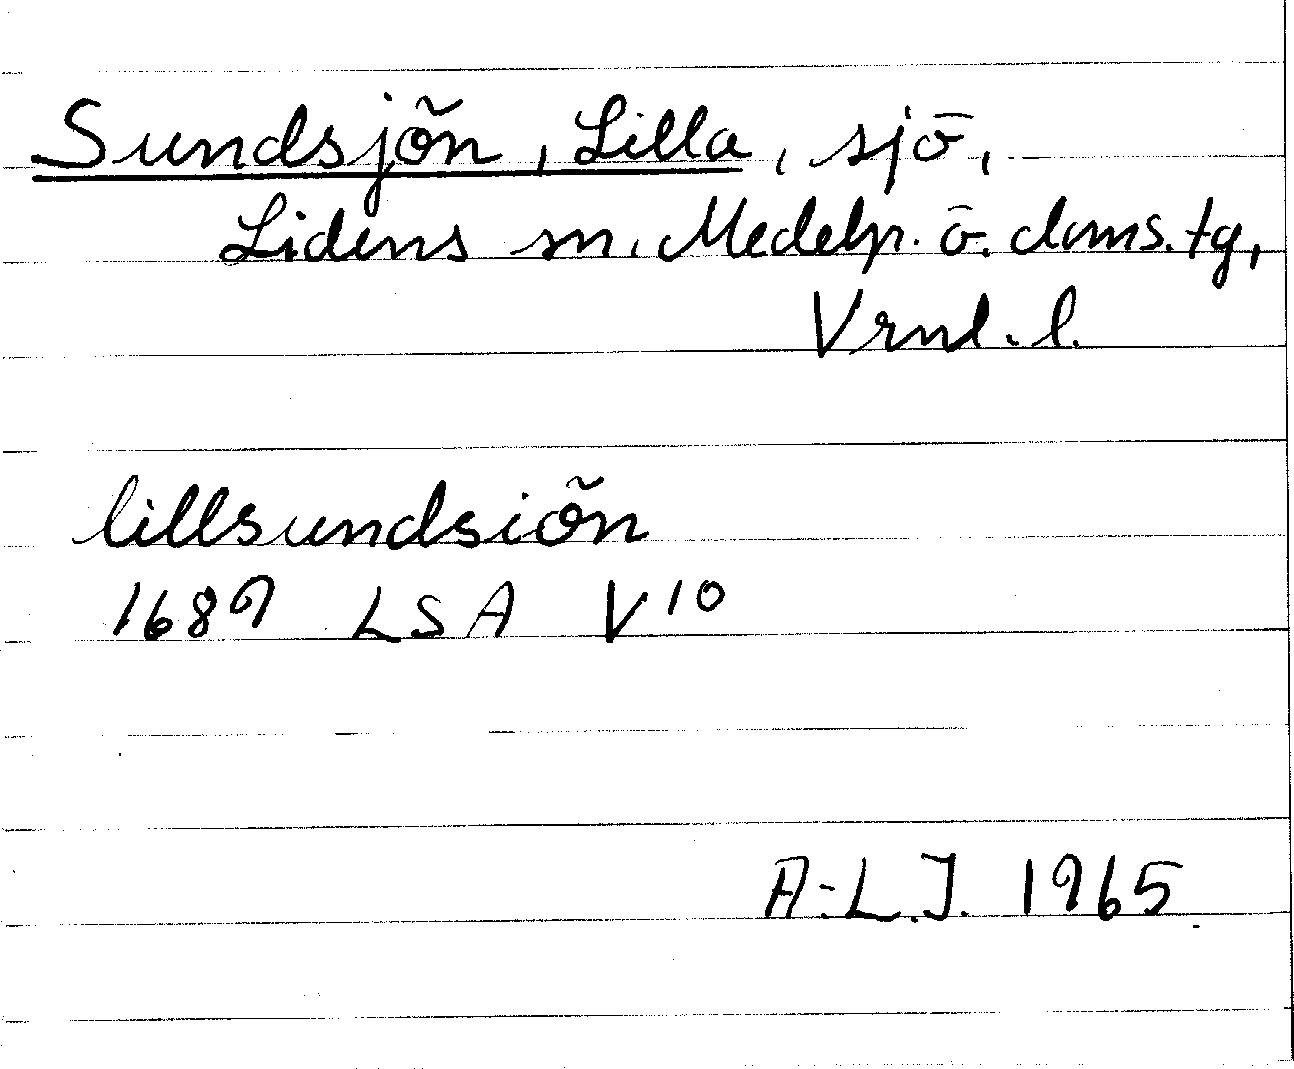 Sundsjön, Lilla, sjö,
Lidens sn. Medelp. ö. doms. tg,
Vrnl. l.
lillsundsiön
1689 LSA V10
A-L.J. 1965